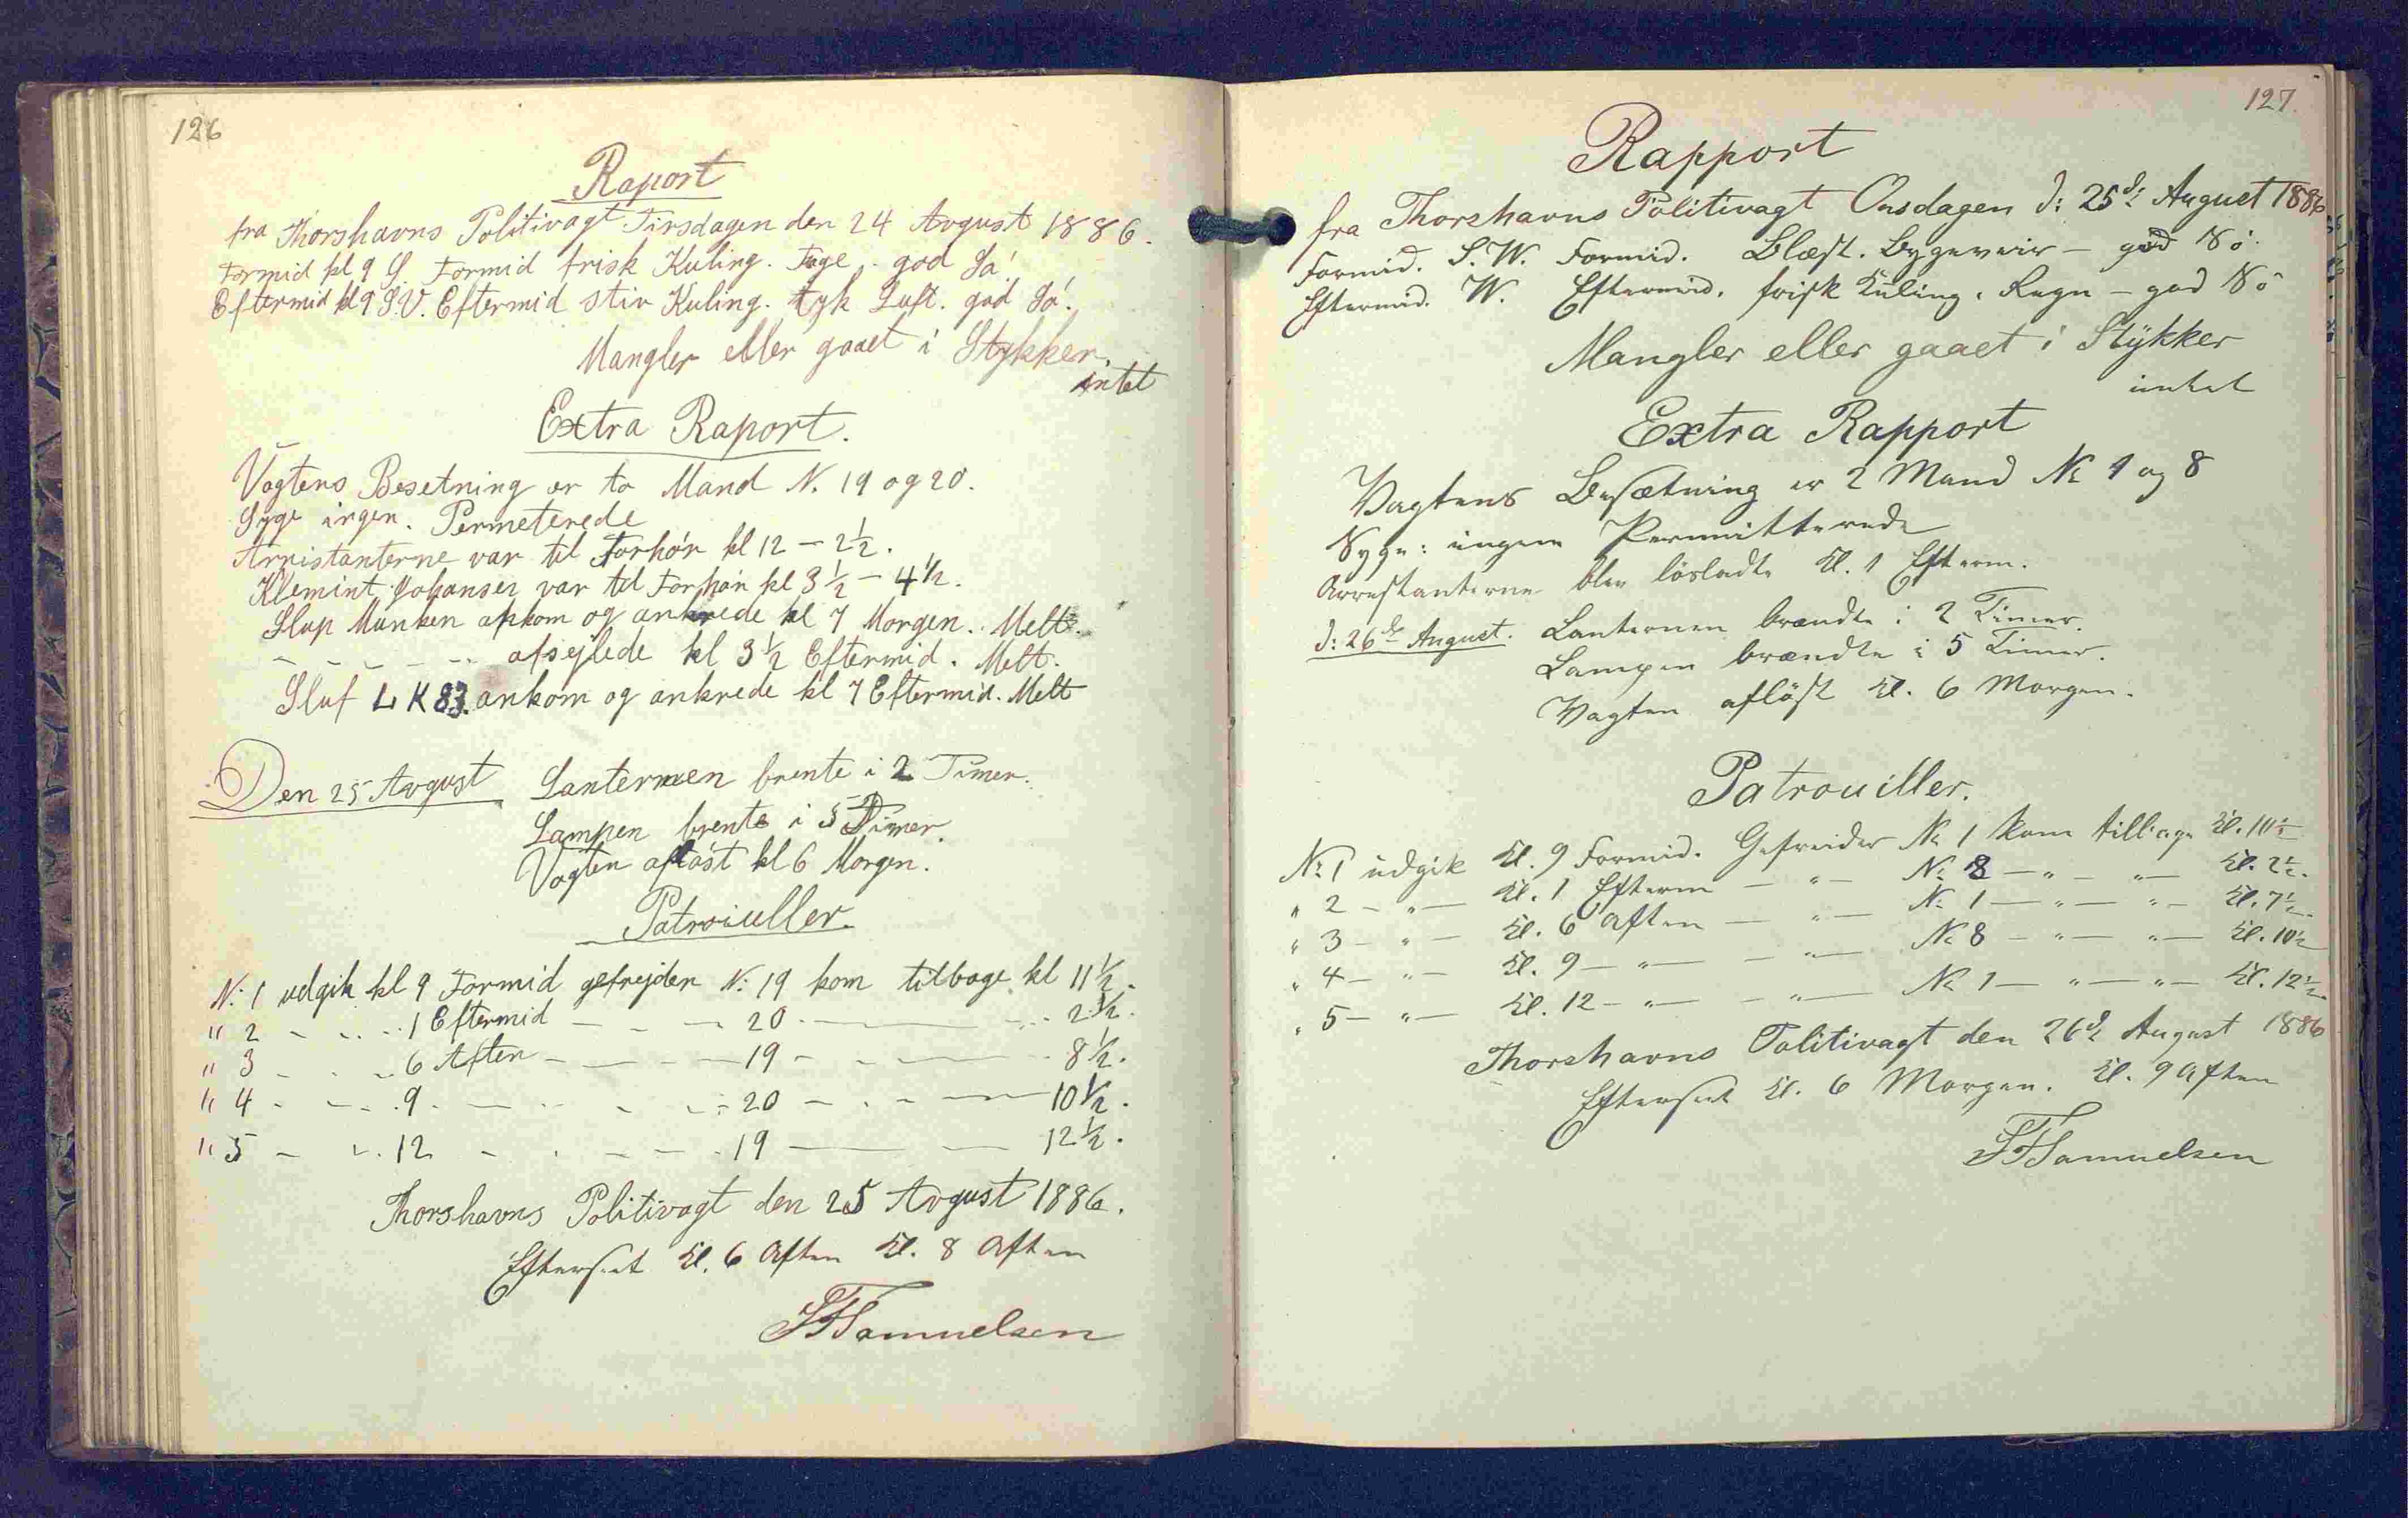 126
Raport
fra Thorshavns Politivagt Tirsdagen den 24 Avgust 1886.
Formid kl 9 S Formid frisk Kuling. Tage. god Sö.
Eftermid kl 9 S.V. Eftermid stiv Kuling. tyk Luft. god Sö.
Mangler eller gaaet i Stykker.
intet
Extra Raport.
Vagtens Besetning er to Mand N. 19 og 20.
Syge ingen. Permeterede
Arristanterne var til Forhör kl 12 — 2½.
Klemint Johanser var til Forhör kl 3½ — 4½.
Slup Munken ankom og ankrede kl 7 Morgen. Melt.
– – – – – afsejlede kl 3½ Eftermid. Melt.
Sluf LK 83. ankom og ankrede kl 7 Eftermid. Melt
Den 25 Avgust Lanternen brente i 2 Timer.
Lampen brente i 5 Timer.
Vagten aflöst kl 6 Morgen.
Patroiuller.
N: 1 udgik kl 9 Formid gefrejder N: 19 kom tilbage kl 11½.
" 2 - - - 1 Eftermid — — — 20 — — — 2½.
" 3 - - - 6 Aften — — — 19 — — — 8½.
" 4 - - - 9 - — - - - 20 — - — 10½.
" 5 — - 12 - - — — 19 — — 12½.
Thorshavns Politivagt den 25 Avgust 1886.
Efterseet Kl. 6 Aften Kl. 8 Aften
Samuelsen
127.
Rapport
fra Thorshavns Politivagt Onsdagen d: 25de August 1886
Formid. S.W. Formid. Blæst. Bygeveir — god Sö.
Eftermid. W. Eftermid. frisk Kuling. Regn — god Sö
Mangler eller gaaet i Stÿkker
intet
Extra Rapport
Vagtens Besætning er 2 Mand No 1 og 8
Syge: ingen Permitterede
Arrestanterne blev lösladte Kl. 1 Efterm.
d: 26de August. Lanternen brændte i 2 Timer.
Lampen brændte i 5 Timer.
Vagten aflöst Kl. 6 Morgen.
Patrouiller.
No 1 udgik Kl. 9 Formid. Gefreider No 1 kom tilbage Kl. 10½
" 2 — " — Kl. 1 Efterm — " — No 8 — " — " — Kl. 2½.
" 3 — " — Kl. 6 Aften — " — No 1 — " — " — Kl. 7½.
" 4 — " — Kl. 9 — " — — " — No 8 — " — " — Kl. 10½
" 5 — " — Kl. 12 — " — — " — No 1 — " — " — Kl. 12½.
Thorshavns Politivagt den 26de August 1886
Efterseet Kl. 6 Morgen. Kl. 9 Aften
Samuelsen